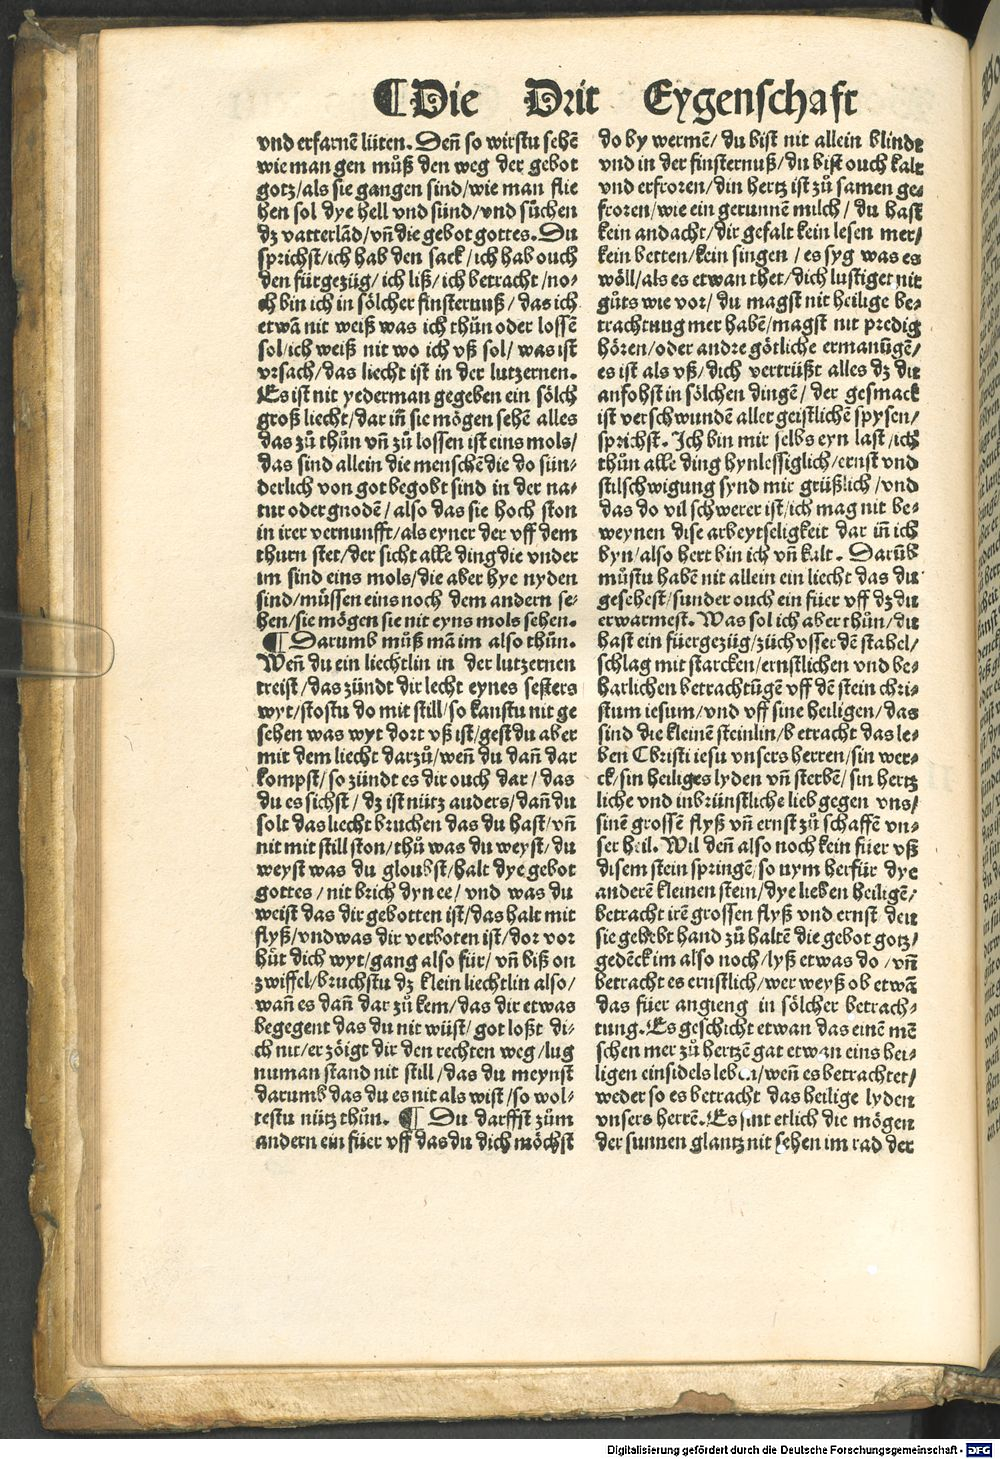 ¶ Die Drit Eygenschaft
vnd erfarnē lüten. Deñ so wirstu sehē
wie man gen müß den weg der gebot
gotz/als sie gangen sind/wie man flie
hen sol dye hell vnd sünd/vnd süchen
dz vatterlād/vñ die gebot gottes. Du
sprichst/ich hab den sack/ich hab ouch
den fürgezüg/ich liß/ich betracht/no⸗
ch bin ich in sölcher finsternuß/das ich
etwā nit weiß was ich thůn oder lossē
sol/ich weiß nit wo ich vß sol/ was ist
vrsach/das liecht ist in der lutzernen.
Es ist nit yederman gegeben ein sölch
groß liecht/dar iñ sie mögen sehē alles
das zů thůn vñ zů lossen ist eins mols/
das sind allein die menschē die do sün⸗
derlich von got begobt sind in der na⸗
tur oder gnodē/also das sie hoch ston
in irer vernunfft/als eyner der vff dem
thurn stet/der sicht alle ding die vnder
im sind eins mols/die aber hye nyden
sind/müssen eins noch dem andern se⸗
hen/sie mögen sie nit eyns mols sehen.
¶ Darumb můß mā im also thůn.
Weñ du ein liechtlin in der lutzernen
treist/das zündt dir lecht eynes sesters
wyt/stostu do mit still/so kanstu nit ge
sehen was wyt dort vß ist/gest du aber
mit dem liecht darzů/weñ du dañ dar
kompst/so zündt es dir ouch dar/das
du es sichst/dz ist nütz anders/dañ du
solt das liecht bruchen das du hast/vñ
nit mit still ston/thů was du weyst/du
weyst was du gloubst/halt dye gebot
gottes/nit brich dyn ee/vnd was du
weist das dir gebotten ist/das halt mit
flyß/vnd was dir verboten ist/dor vor
hüt dich wyt/gang also für/vñ biß on
zwiffel/bruchstu dz klein liechtlin also/
wañ es dañ dar zů kem/das dir etwas
begegent das du nit wüst/got loßt di⸗
ch nit/er zöigt dir den rechten weg/lug
numan stand nit still/das du meynst
darumb das du es nit als wist/so wol⸗
testu nütz thůn. ¶ Du darffst zům
andern ein füer vff das du dich möchst
do by wermē/du bist nit allein blindt
vnd in der finsternuß/du bist ouch kalt
vnd erfroren/din hertz ist zů samen ge⸗
froren/wie ein gerunnē milch/du hast
kein andacht/dir gefalt kein lesen mer/
kein betten/kein singen/es syg was es
wöll/als es etwan thet/dich lustiget nit
gůts wie vor/du magst nit heilige be⸗
trachtung mer habē/magst nit predig
hören/oder andre götliche ermanūgē/
es ist als vß/dich vertrüßt alles dz du
anfohst in sölchen dingē/der gesmack
ist verschwundē aller geistlichē spysen/
sprichst. Ich bin mir selbs eyn last/ich
thůn alle ding hynlessiglich/ernst vnd
stilschwigung synd mir grüßlich/vnd
das do vil schwerer ist/ich mag nit be⸗
weynen dise arbeytseligkeit dar iñ ich
byn/also hert bin ich vñ kalt. Darūb
můstu habē nit allein ein liecht das du
gesehest/sunder ouch ein füer vff dz du
erwarmest. Was sol ich aber thůn/du
hast ein füergezüg/züch vsser dē stabel/
schlag mit starcken/ernstlichen vnd be⸗
harlichen betrachtūgē vff dē stein chri⸗
stum iesum/vnd vff sine heiligen/das
sind die kleinē steinlin/betracht das le⸗
ben Christi iesu vnsers herren/sin wer⸗
ck/sin heiliges lyden vñ sterbē/sin hertz
liche vnd inbrünstliche lieb gegen vns/
sinē grossē flyß vñ ernst zů schaffē vn⸗
ser heil. Wil deñ also noch kein füer vß
disem stein springen/so nym herfür dye
anderē kleinen stein/dye lieben heiligē/
betracht irē grossen flyß vnd ernst den
sie gehebt hand zů haltē die gebot gotz/
gedēck im also noch/lyß etwas do/vñ
betracht es ernstlich/wer weyß ob etwā
das füer angieng in sölcher betrach⸗
tung. Es geschicht etwan das einē mē
schen mer zů hertzē gat etwan eins hei⸗
ligen einsidels leben/weñ es betrachtet/
weder so es betracht das heilige lyden
vnsers herrē. Es sint etlich die mögen
der sunnen glantz nit sehen im rad der
Digitalisierung gefördert durch die Deutsche Forschungsgemeinschaft - DFG